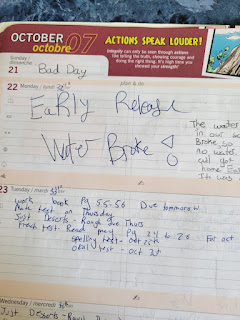 OCTOBER 07
octobre
ACTIONS SPEAK LOUDER!
Integrity can only be seen through actions
like telling the truth, showing courage and
doing the right thing. It's high time you
showed your strength!
Sunday /
dimanche
21 Bad Day
plan & do
22 Monday / lundi
EaRly Release
Water Broke
The water
in our
Broke so
no water.
got
home Early
It was
23 Tuesday / mardi
work book Pg 55-56 Due tommorow
Mate test on Thursday
Just Deserts - Rough due Thurs
French test Read pg 24 to 26 For oct
spelling test - oct 25th
oral test - oct 2
Wednesday / mercredi
Just Desserts - Rough